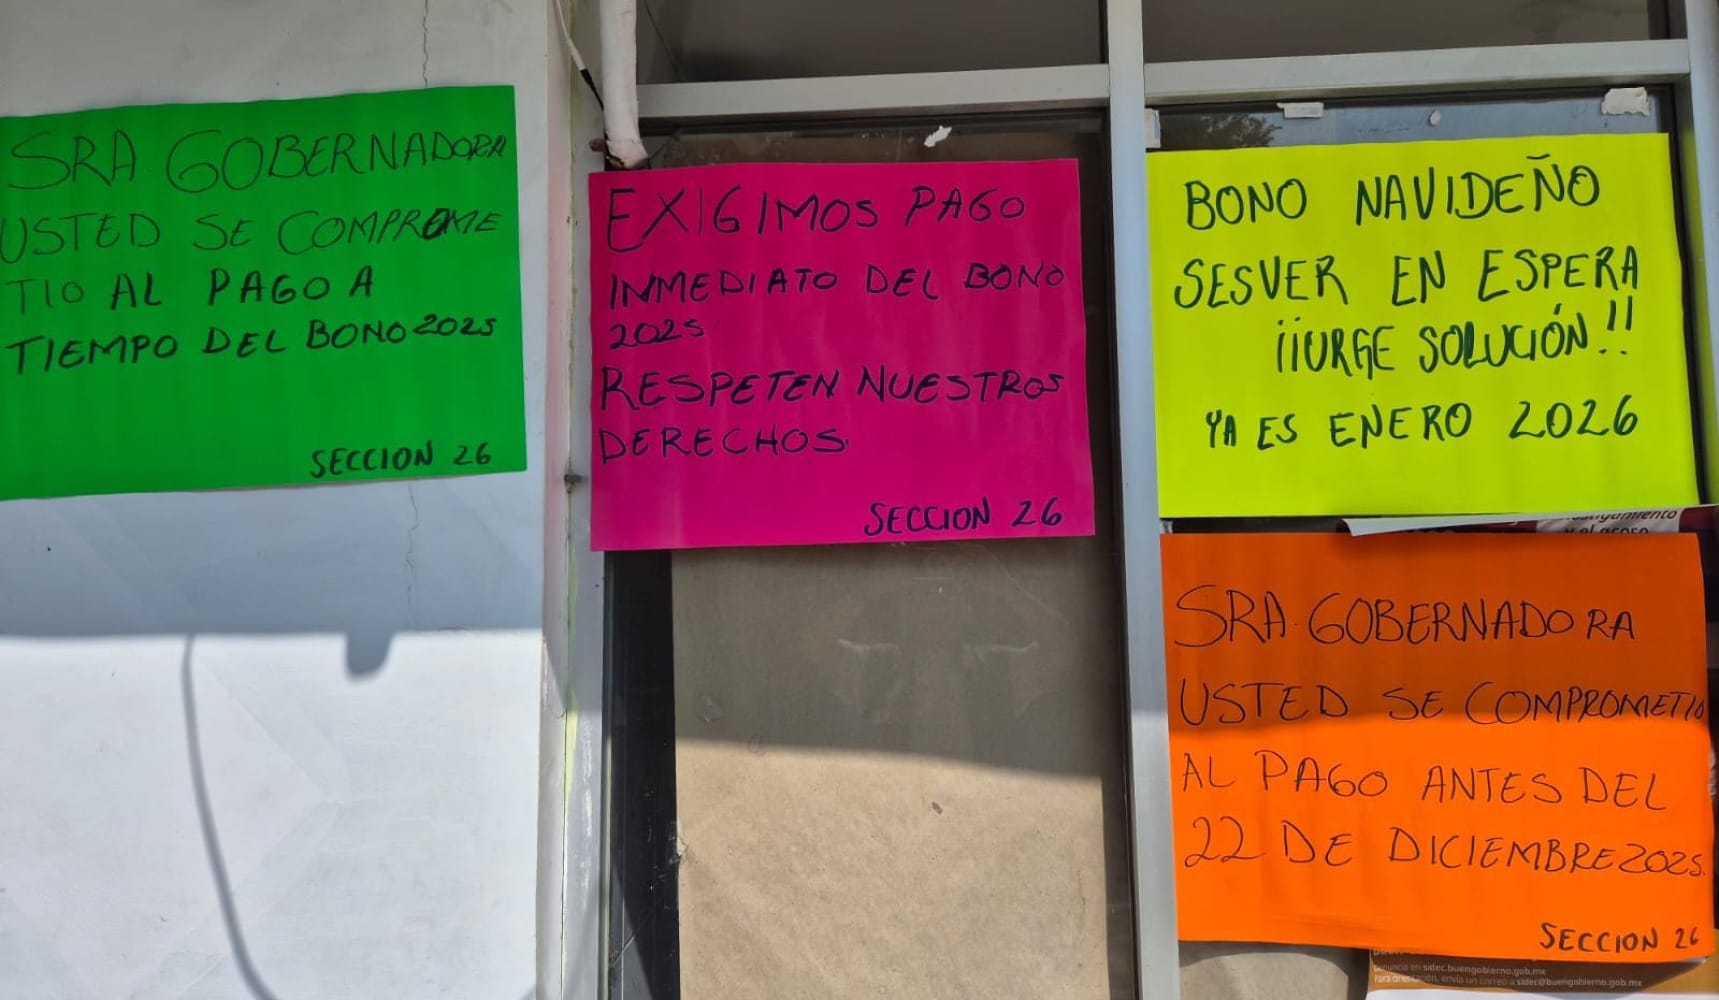 SRA. GOBERNADORA
USTED SE COMPROME
TIO AL PAGO A
TIEMPO DEL BONO 2025
SECCION 26
EXIGIMOS PAGO
INMEDIATO DEL BONO
2025
RESPETEN NUESTROS
DERECHOS.
SECCION 26
BONO NAVIDEÑO
SESVER EN ESPERA
¡¡URGE SOLUCIÓN!!
YA ES ENERO 2026
y el acoso
SRA. GOBERNADORA
USTED SE COMPROMETIO
AL PAGO ANTES DEL
22 DE DICIEMBRE 2025.
SECCION 26
Denuncia en sidec.buengobierno.gob.mx
Para orientación, envía un correo a sidec@buengobierno.gob.mx